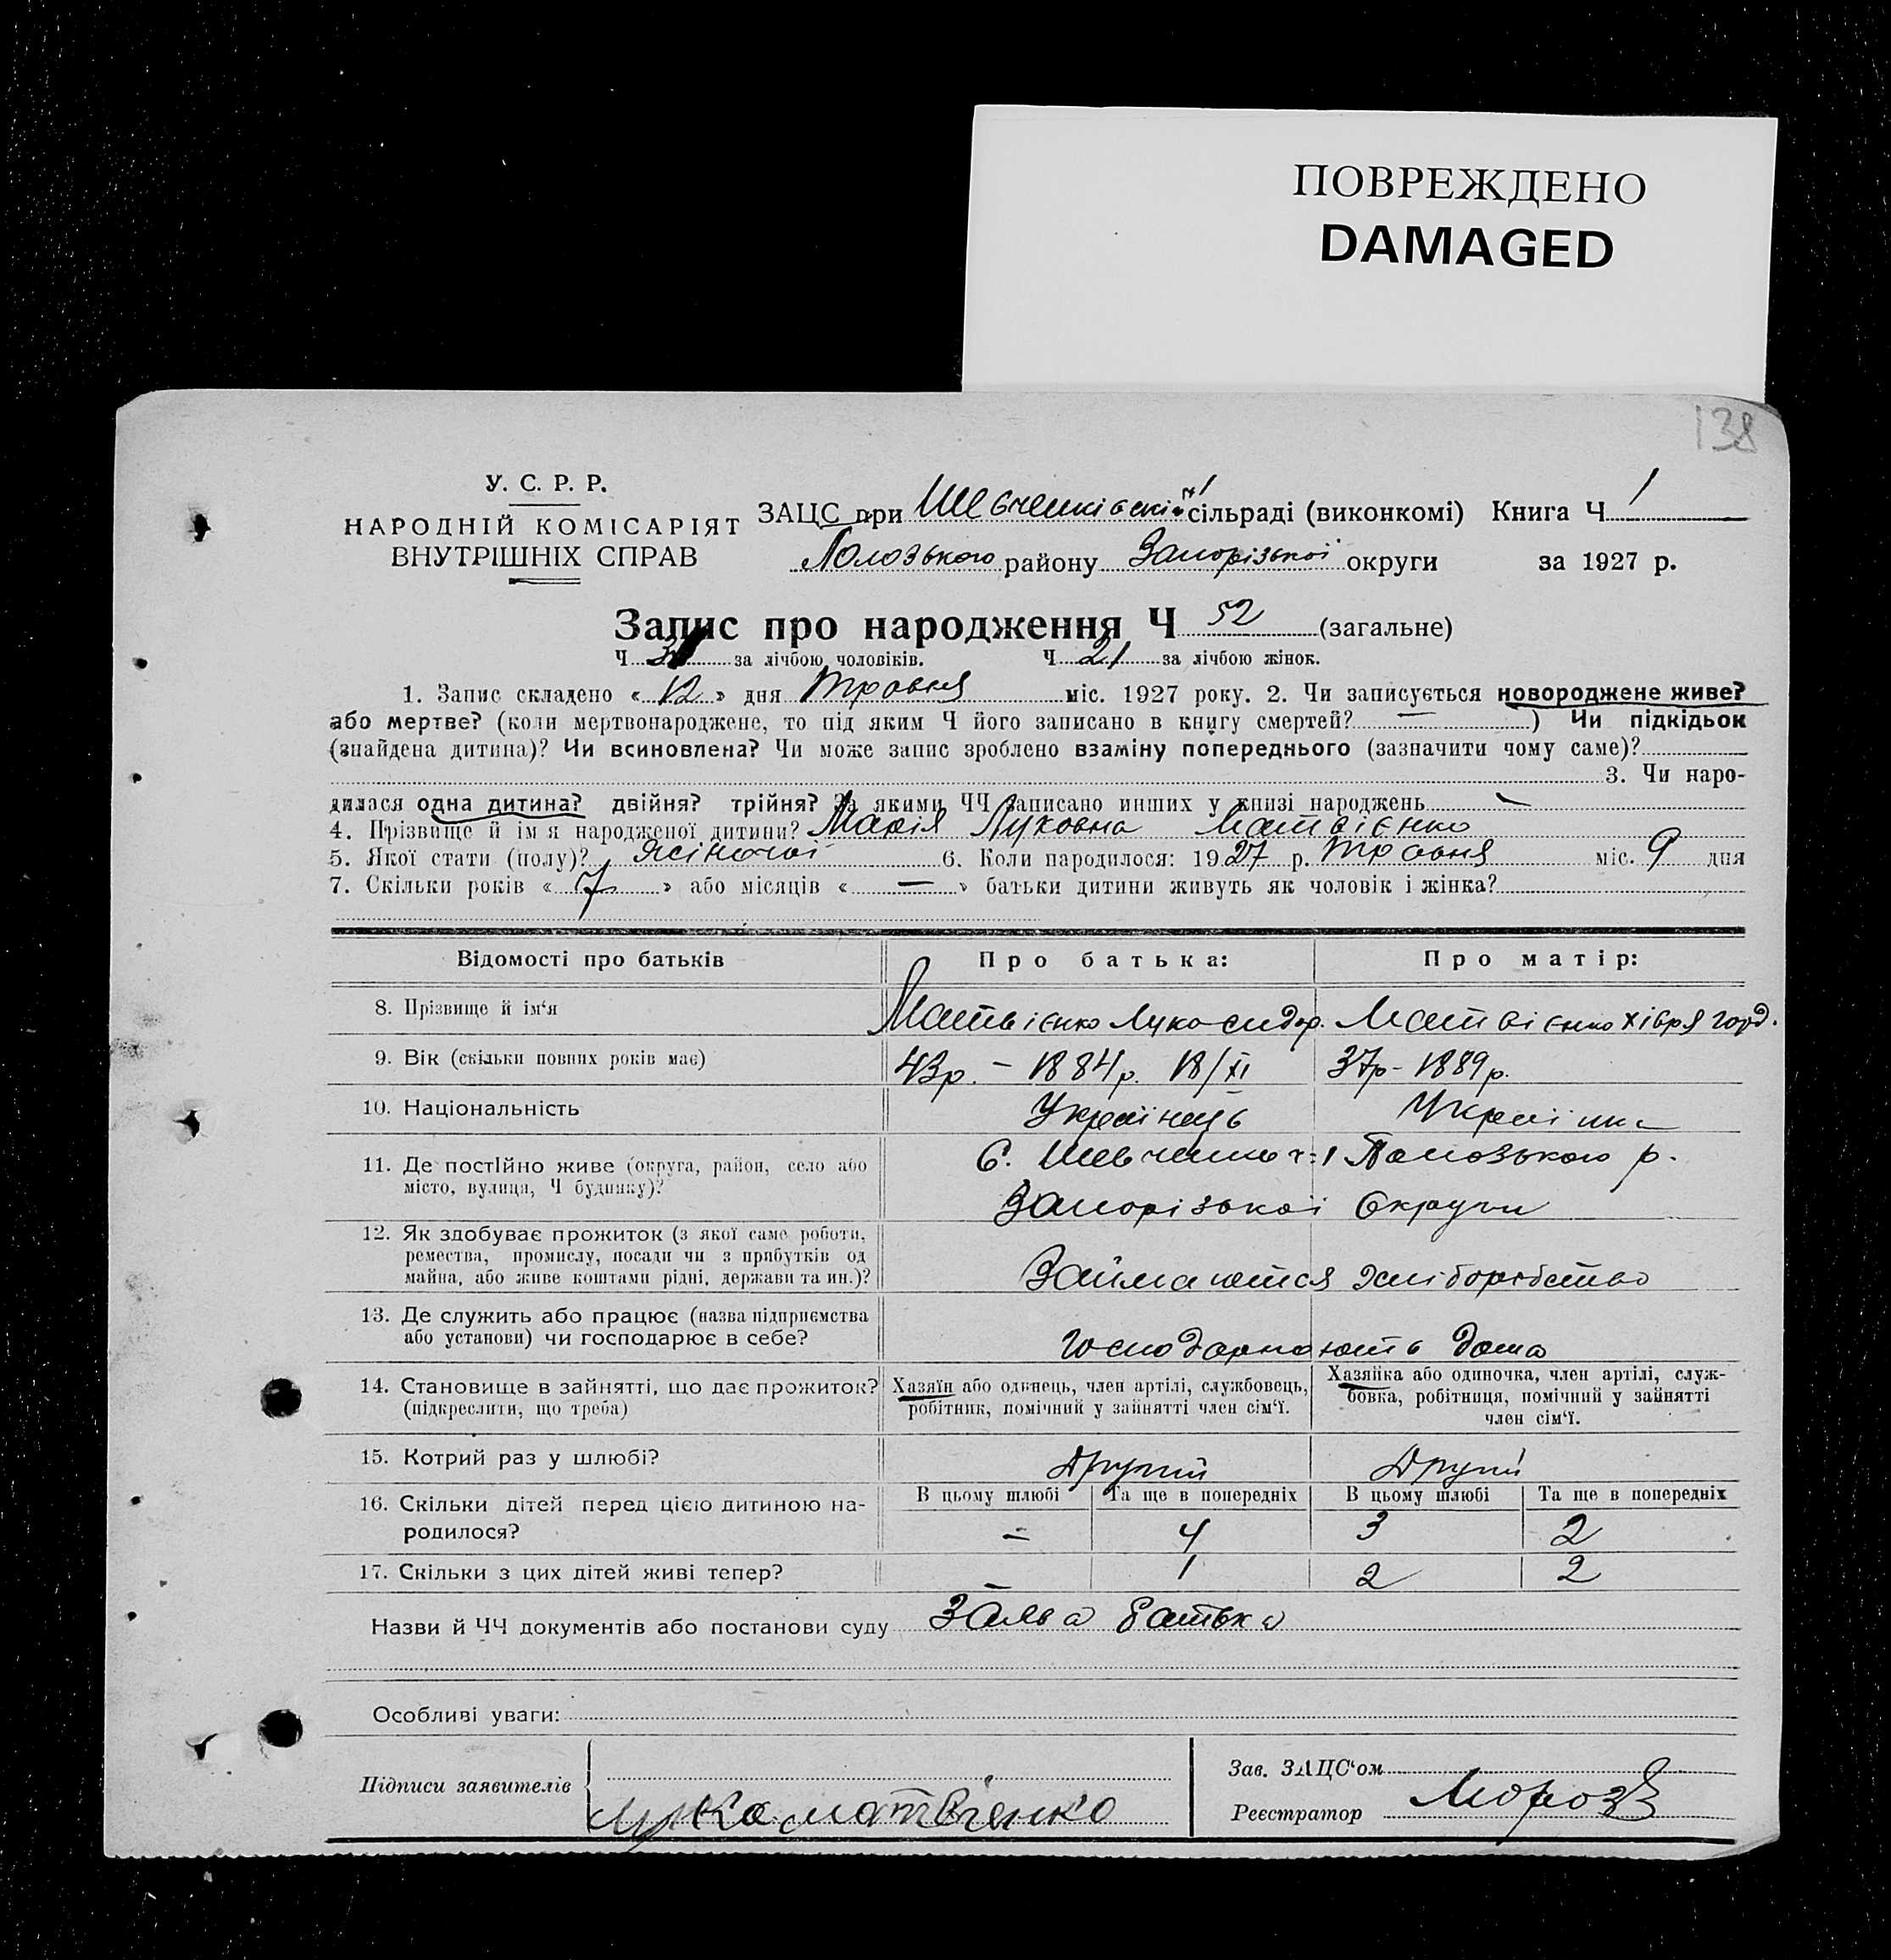 ПОВРЕЖДЕНО
DAMAGED
138
У. С. Р. Р.
НАРОДНІЙ КОМІСАРІЯТ
ВНУТРІШНІХ СПРАВ
ЗАЦС при Шевченківскій ч 1 сільраді (виконкомі) Книга Ч 1
Пологського району Запорізької округи за 1927 р.
Запис про народження Ч 52 (загальне)
Ч 31 за лічбою чоловіків. Ч 21 за лічбою жінок.
1. Запис складено « 12 » дня травня міс. 1927 року. 2. Чи записується новороджене живе?
або мертве? (коли мертвонароджене, то під яким Ч його записано в книгу смертей? — ) Чи підкідьок
(знайдена дитина)? Чи всиновлена? Чи може запис зроблено взаміну попереднього (зазначити чому саме)?
3. Чи наро-
дилася одна дитина? двійня? трійня? За якими ЧЧ записано инших у книзі народжень —
4. Прізвище й ім'я народженої дитини? Марія Луковна Матвієнко
5. Якої стати (полу)? жіночої 6. Коли народилося: 1927 р. травня міс. 9 дня
7. Скільки років « 7 » або місяців « — » батьки дитини живуть як чоловік і жінка?
Відомості про батьків Про батька: Про матір:
8. Прізвище й ім'я Матвієнко Лука сидор. Матвієнко Хівря горд.
9. Вік (скільки повних років має) 43р. – 1884р. 18/XI 37р – 1889р.
10. Національність Українець Українка
11. Де постійно живе (округа, район, село або
місто, вулиця, Ч будинку)?
С. Шевченко ч: 1 Пологського р.
Запорізької Округи
12. Як здобуває прожиток (з якої саме роботи,
ремества, промислу, посади чи з прибутків од
майна, або живе коштами рідні, держави та ин.)?
Займаются хліборобство
13. Де служить або працює (назва підприємства
або установи) чи господарює в себе?
Господарюють дома
14. Становище в зайнятті, що дає прожиток?
(підкреслити, що треба)
Хазяїн або одинець, член артілі, службовець,
робітник, помічний у зайнятті член сім'ї.
Хазяйка або одиночка, член артілі, служ-
бовка, робітниця, помічний у зайнятті
член сім'ї.
15. Котрий раз у шлюбі? Другий Другий
16. Скільки дітей перед цією дитиною на-
родилося?
В цьому шлюбі Та ще в попередніх В цьому шлюбі Та ще в попередніх
– 4 3 2
17. Скільки з цих дітей живі тепер? – 1 2 2
Назви й ЧЧ документів або постанови суду Заява батька
Особливі уваги:
Підписи заявителів
Лука матвієнко
Зав. ЗАЦС'ом
Реєстратор Мороз